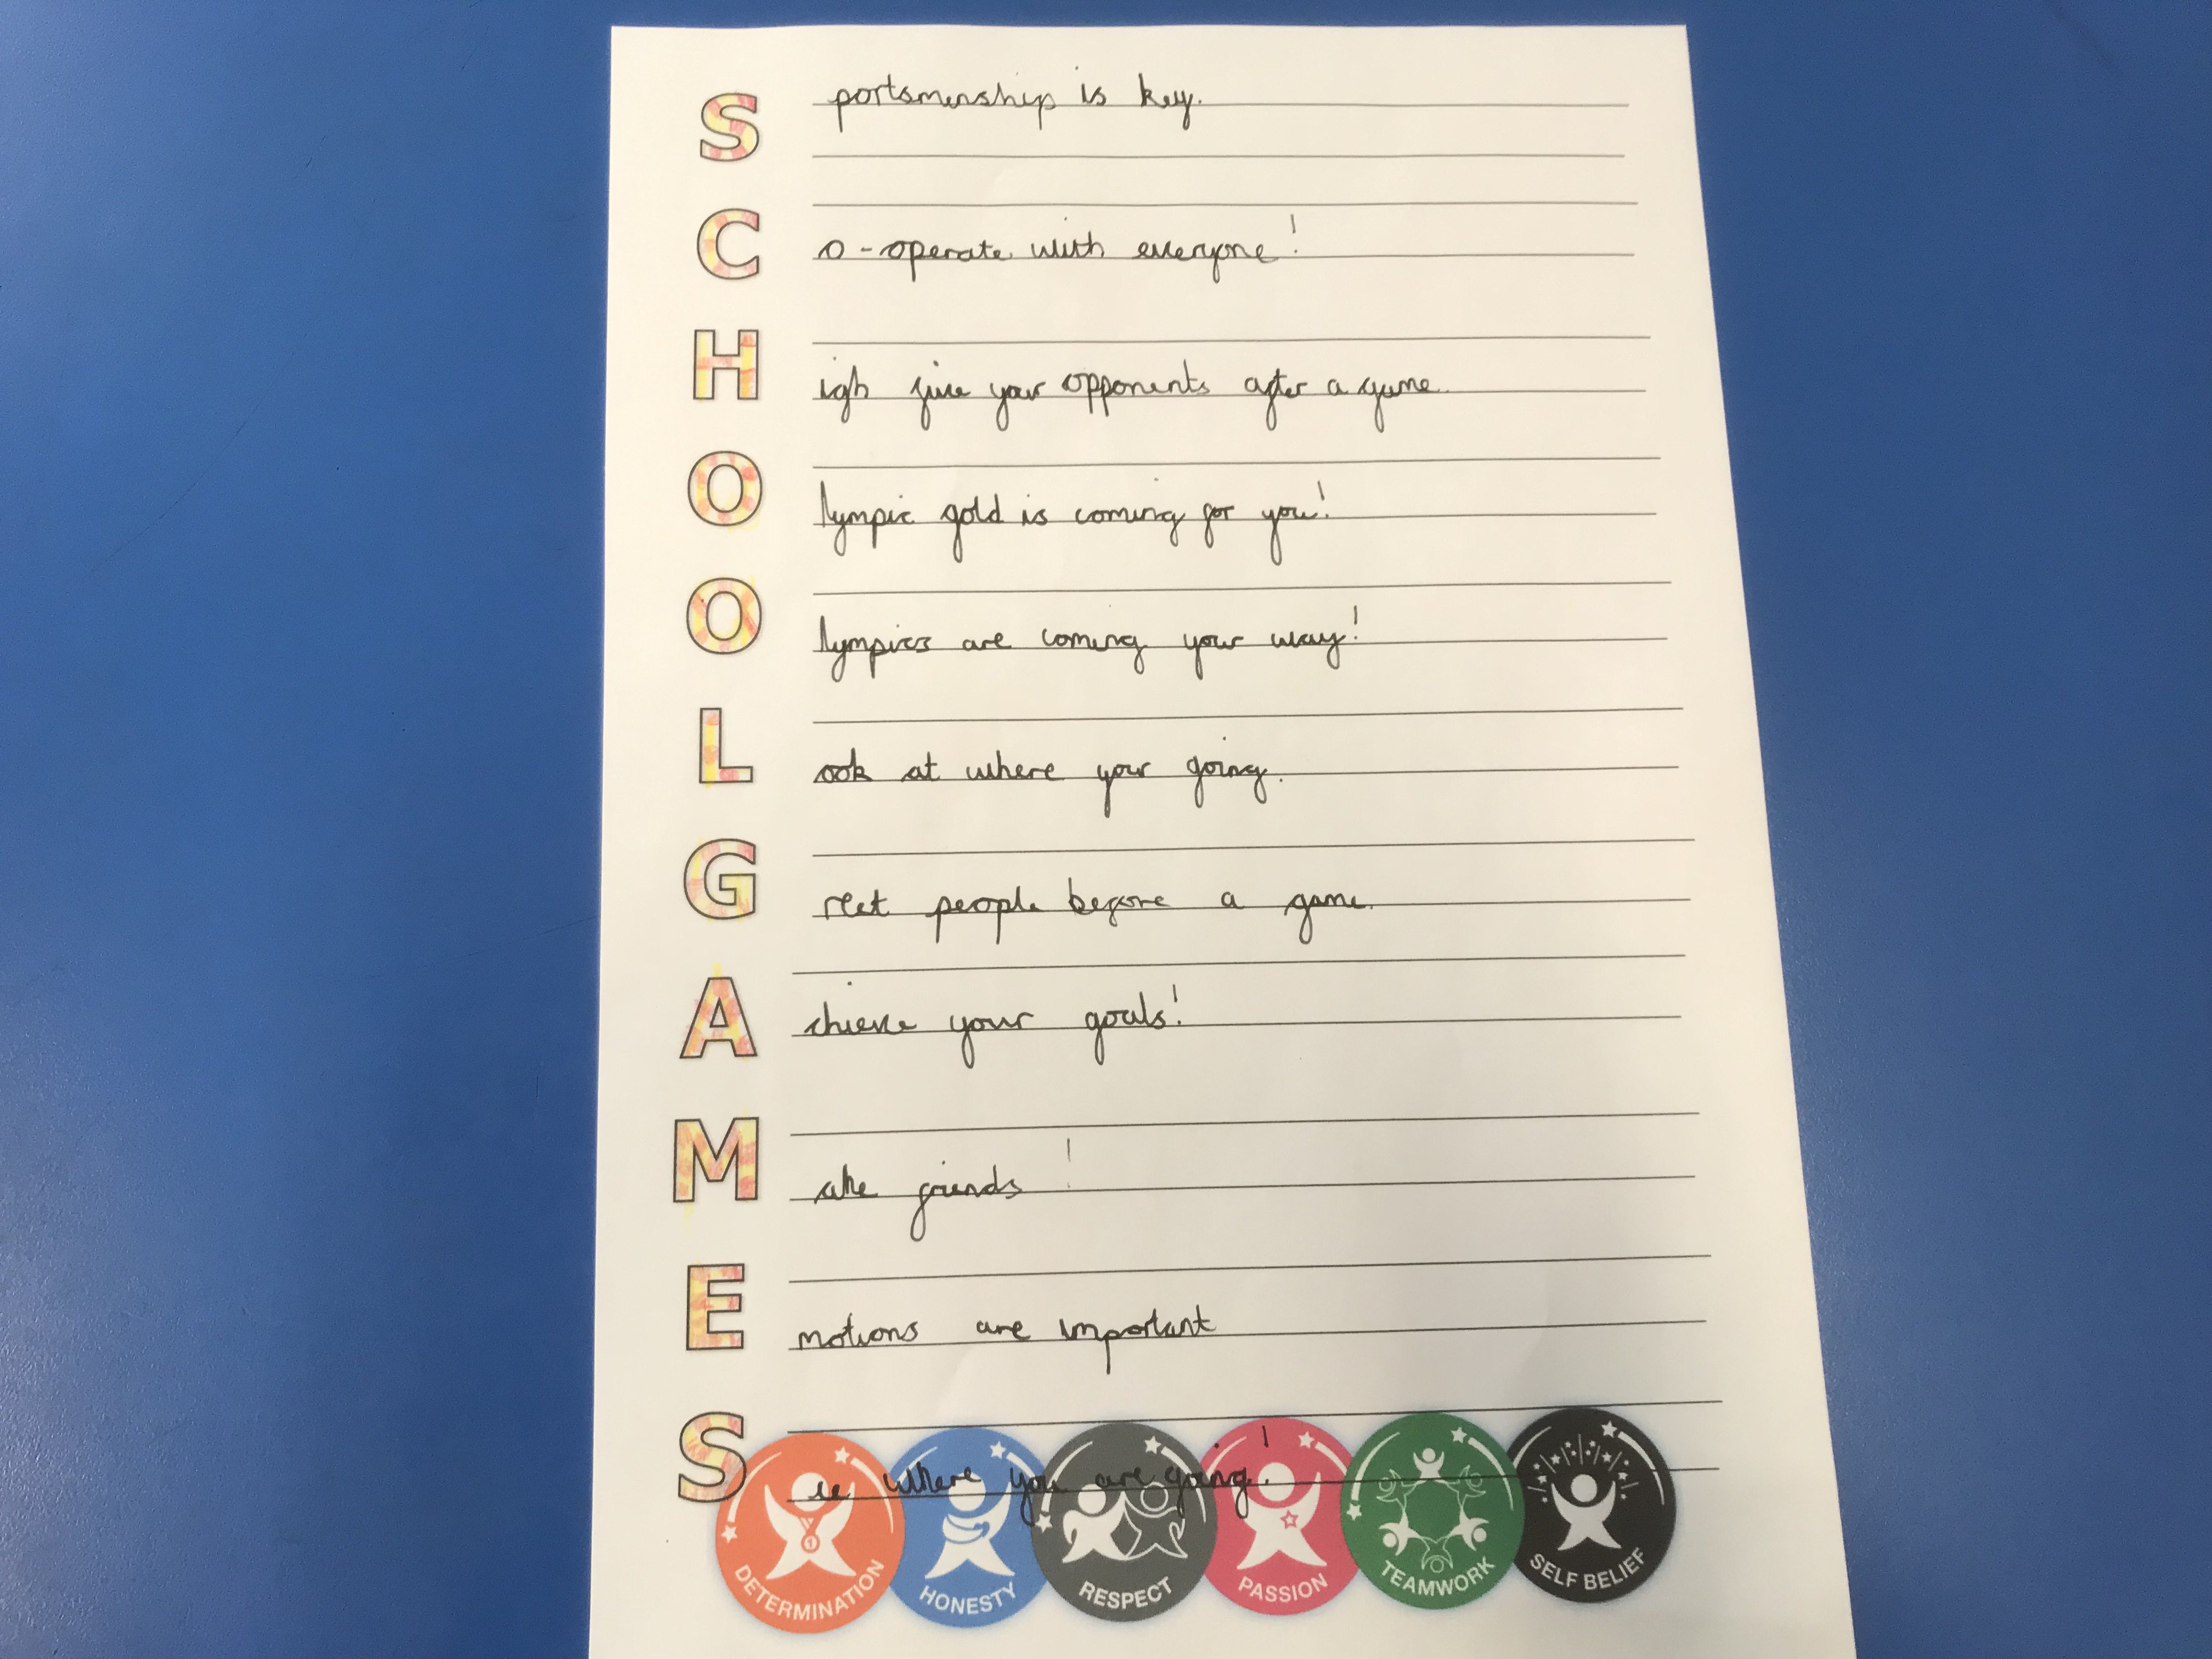 S portsmenship is key.
C o-operate with everyone!
H igh five your opponents after a game.
O lympic gold is coming for you!
O lympics are coming your way!
L ook at where your going.
G reet people before a game.
A chieve your goals!
M ake friends !
E motions are important
S ee where you are going!
DETERMINATION HONESTY RESPECT PASSION TEAMWORK SELF BELIEF